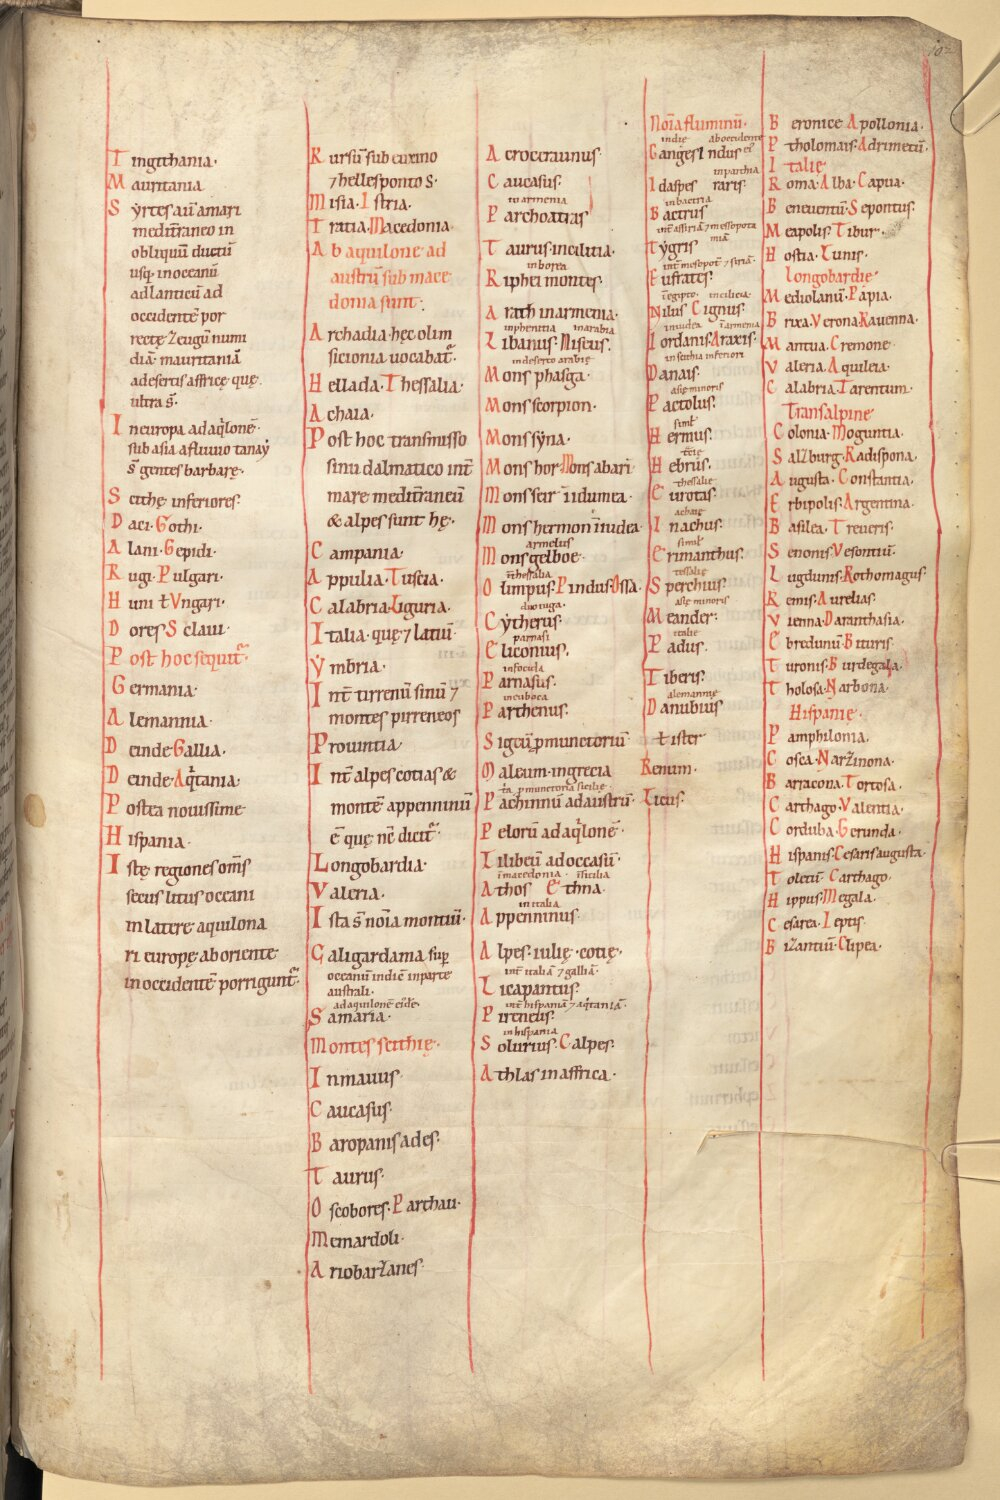 102
Tingithania·
Mauritania
Syrtes aū amari
meditraneo in
obliquū ductū
usq; in oceanū
adlanticū ad
occidentē por
recte Zeugū numi
diā· mauritaniā
adesertis affrice que
ultra s̄·
In europa ad aqlonē·
sub asia a fluuio tanay
s̄ gentes barbarę·
Scithe inferiores·
Daci· Gothi·
Alani· Gepidi·
Rugi· Pulgari·
Huni ł Vngari·
Dores Sclaui·
Post hoc sequit̃·
Germania·
Alemannia·
Deinde Gallia·
Deinde Aqtania·
Postea nouissime
Hispania·
Istę regiones om̄s
secus litus oceani
in latere aquilona
ri europę ab oriente
in occidentē porrigunt̃·
Rursū sub euxino
⁊ hellesponto s̄·
Misia· Istria·
Tratia· Macedonia
Ab aquilone ad
austrū sub mace
donia sunt·
Archadia· hęc olim
sicionia uocabat̃·
Hellada· Thessalia·
Achaia·
Post hoc transmisso
sinu dalmatico int̄
mare meditraneū
& alpes sunt hę·
Campania·
Appulia· Tuscia·
Calabria· Liguria·
Italia· quę ⁊ latiū
Ymbria·
Int̄ tirrenū sinū ⁊
montes pirreneos
Prouintia
Int̄ alpes cotias &
montē appenninū
ē quę nc̄ dicit̃·
Longobardia·
Valeria·
Ista s̄ noīa montiū·
Galigardama sup
oceanū indiē in parte
australi·
ad aquilonē eīde·
Samaria·
Montes scithię·
Inmauus·
Caucasus·
Baropanisades·
Taurus·
Oscobores· Parthau·
Memardoli·
Ariobarzanes·
Acroceraunus·
Caucasus·
in armenia
Parchoatras
Taurus in cilitia·
in borea
Riphei montes·
Ararth in armenia·
in phenitia in arabia
Libanus· Niseus·
in deserto arabię
Mons phasga·
Mons scorpion·
Mons syna·
Mons hor· Mons abari
Mons seir in idumea·
Mons hermon in iudea·
armelus
Mons gelboe·
in thessalia
Olimpus· Pindus· Ossa·
duo iuga·
Cytherus·
parnasi
Eliconius·
in focida
Parnasus·
in euboea
Parthenus·
Sigeū pmunctoriū
Maleum· in grecia
ta pmunctoria sicilię·
Pachinnū ad austrū·
Pelorū ad aqlonē·
Lilibeū ad occasū·
in macedonia· in sicilia
Athos Ethna·
in italia
Appenninus·
Alpes· iulię· cotię·
int̄ italiā ⁊ galliā·
Licapantus·
int̄ hispaniā ⁊ aqtaniā·
Pireneus·
in hispania
Solurius· Calpes·
Athlas in affrica·
Noīa fluminū·
indię ab occidente ei
Ganges Indus
in parthia
Idaspes raris·
in bactria
Bactrus
int̄ assiriā ⁊ messopota
miā
Tygris
int̄ mesopot̄ ⁊ siriā·
Eufrates·
in egipto· in cilicia·
Nilus Cignus·
in iudea in armenia
Iordanis· Araxis·
in scithia inferiori
Danais·
asię minoris
Pactolus·
simł
Hermus·
tracię
Hebrus·
thessalię
Eurotas·
achaię
Inachus·
simł
Erimanthus·
tessalię
Sperchius·
asię minoris
Meander·
italię
Padus·
Iiberis·
alemannię
Danubius
ł ister
Renum·
Licus·
Beronice Apollonia·
Ptholomais· Adrimetū·
Italię
Roma· Alba· Capua·
Beneuentū· Sepontus·
Neapolis· Tibur·
Hostia· Lunis·
Longobardie
Mediolanū· Papia·
Brixa· Verona· Rauenna·
Mantua· Cremone·
Valeria· Aquileia·
Calabria· Tarentum·
Transalpine
Colonia· Moguntia·
Salzburg· Radispona·
Augusta· Constantia·
Erbipolis· Argentina·
Basilea· Treueris·
Senonis· Vesontiū·
Lugdunis· Rothomagus·
Remis· Aurelias·
Vienna· Daranthasia·
Ebredunū· Bituris·
Turonis· Burdegala·
Tholosa· Narbona·
Hispanię·
Pamphilonia·
Cosca· Narzinona·
Barracona· Tortosa·
Carthago· Valentia·
Corduba· Gerunda·
Hispanis· Cesaris augusta·
Toletū· Carthago·
Hippus· Megala·
Cesarea· Leptis·
Bizantiū· Clipea·